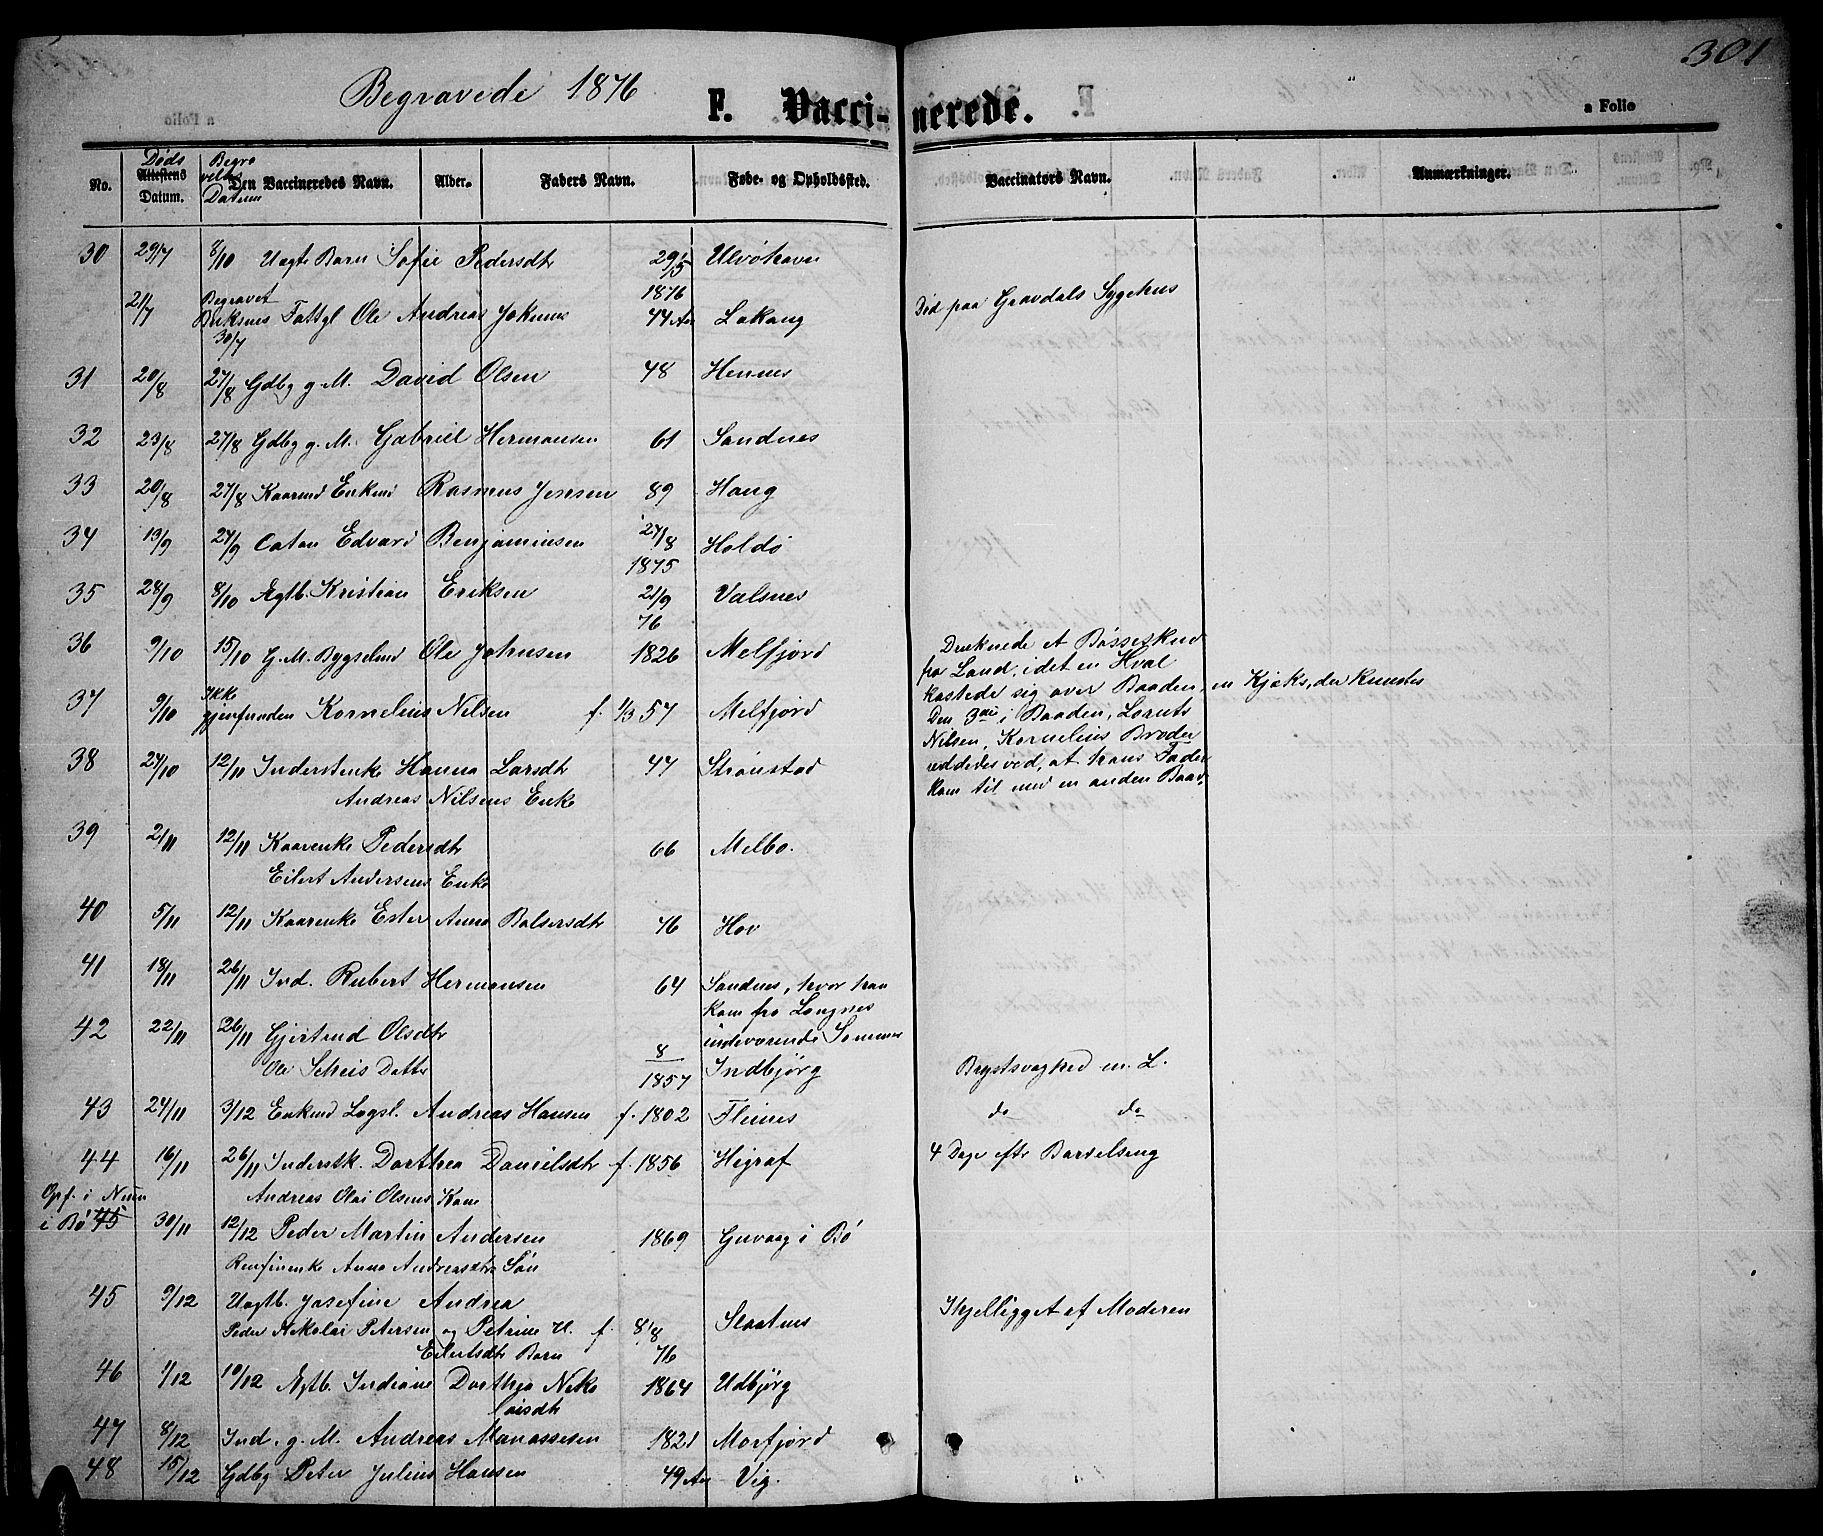 301
Begravede 1876
F. Vacci-nerede.
a Folio
No. Døds Attestens Datum. Begravelses Datum Den Vaccineredes Navn. Alder. Faders Navn. Føde- og Opholdssted. Vaccinators Navn. Anmærkninger.
30 29/7 8/10 Uægte Barn Sofie Pedersdtr 29/5 1876 Ulvøhavn
21/7 Begravet Buksnes 30/7 Fattgl Ole Andreas 44 Aar Død paa Gravdals Sygehus
31 20/8 27/8 Gdbg g. M. David Olsen 48 Hennes
32 23/8 27/8 Gdbg g. M. Gabriel Hermansen 61 Sandnes
33 20/8 27/8 Kaarmd Enkmd Rasmus Jensen 89 Haug
34 13/9 24/9 Caton Edvard Benjaminsen 27/8 1875 Holdø
35 28/9 8/10 Ægtb. Kristian Eriksen 21/9 76 Valsnes
36 9/10 15/10 G. M. Bygselmd Ole Johnsen 1826 Melfjord
Druknede et Bøsseskud
fra Land, idet en Hval
kastede sig over Baaden, en Kjæks, der knustes
37 9/10 Ikke gjenfunden Kornelius Nilsen f. 1/3 57 Melfjord
Den 3die i Baaden, Lornts
Nilsen, Kornelius Broder
reddedes ved, at hans Fader
kom til med en anden Baad.
38 24/10 12/11 Inderstenke Hanna Larsdtr 47 Strønstad
Andreas Nilsens Enke
39 2/11 12/11 Kaarenke Pedersdtr 66 Melbo.
Eilert Andersens Enke
40 5/11 12/11 Kaarenke Ester Anna Balsersdtr 76 Hov
41 18/11 26/11 Ind. Rubert Hermansen 64 Sandnes, hvor han
kom fra Langnes
indeværende Sommer
42 22/11 26/11 Gjertrud Olsdtr 8/1857 Indbjørg Brystsvaghed m. L.
Ole Datter
43 24/11 3/12 Enkmd Lægsl. Andreas Hansen f. 1802 Flimes do do
44 16/11 26/11 Inderstk. Dorthea Danielsdtr f. 1856 Higraf 4 Dage eftr Barselseng
Andreas Olai Olsens Kone
Opf. i Num i Bø 45 30/11 12/12 Peder Martin Andersen 1869 Guvaag i Bø
Anna Andreasdtr Søn
45 9/12 Uægtb. Josefine Andrea f. 8/8 76 Slaatnes Ihjelligget af Moderen
Peder Nikolai Petersen og Petrine H.
Eilertsdtr Barn
46 1/12 10/12 Ægtb. Indiane Dorthea Niko
laisdtr 1864 Udbjørg
47 8/12 Ind. g. M. Andreas Manassesen 1821 Morfjord
48 15/12 Gdbg Peter Julius Hansen 49 Aar Vig.